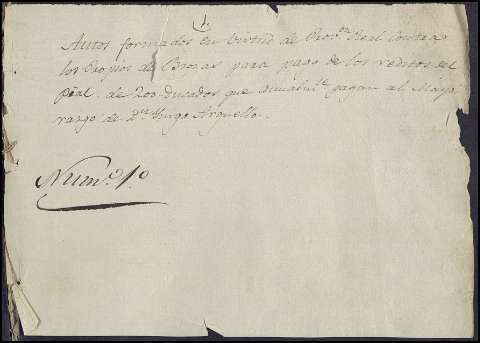 1.
Autos formados en virtud de Prov.ⁿ Real contra
los Propios de Brozas para pago de los reditos del
pral. de 200 Ducados que anualm.te pagan al Mayo
razgo de D.ⁿ Hugo Arguello.
Num.º 1.º